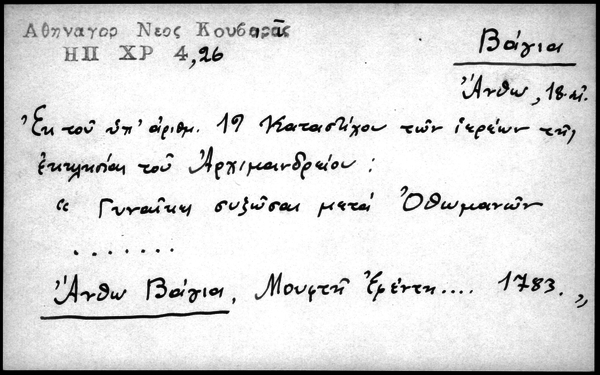 Αθηναγορ Νεος Κουβαρᾶς
ΗΠ ΧΡ 4,26
Βάγια
Ἄνθω, 18. αἰ.
Ἐκ τοῦ ὑπ' ἀριθμ. 19 Καταστίχου τῶν ἱερέων τῆς
ἐκκλησίας τοῦ Ἀρχιμανδρείου :
“ Γυναῖκες συζῶσαι μετά Ὀθωμανῶν
.......
Ἄνθω Βάγια, Μουφτῆ Ἐφέντη.... 1783. „